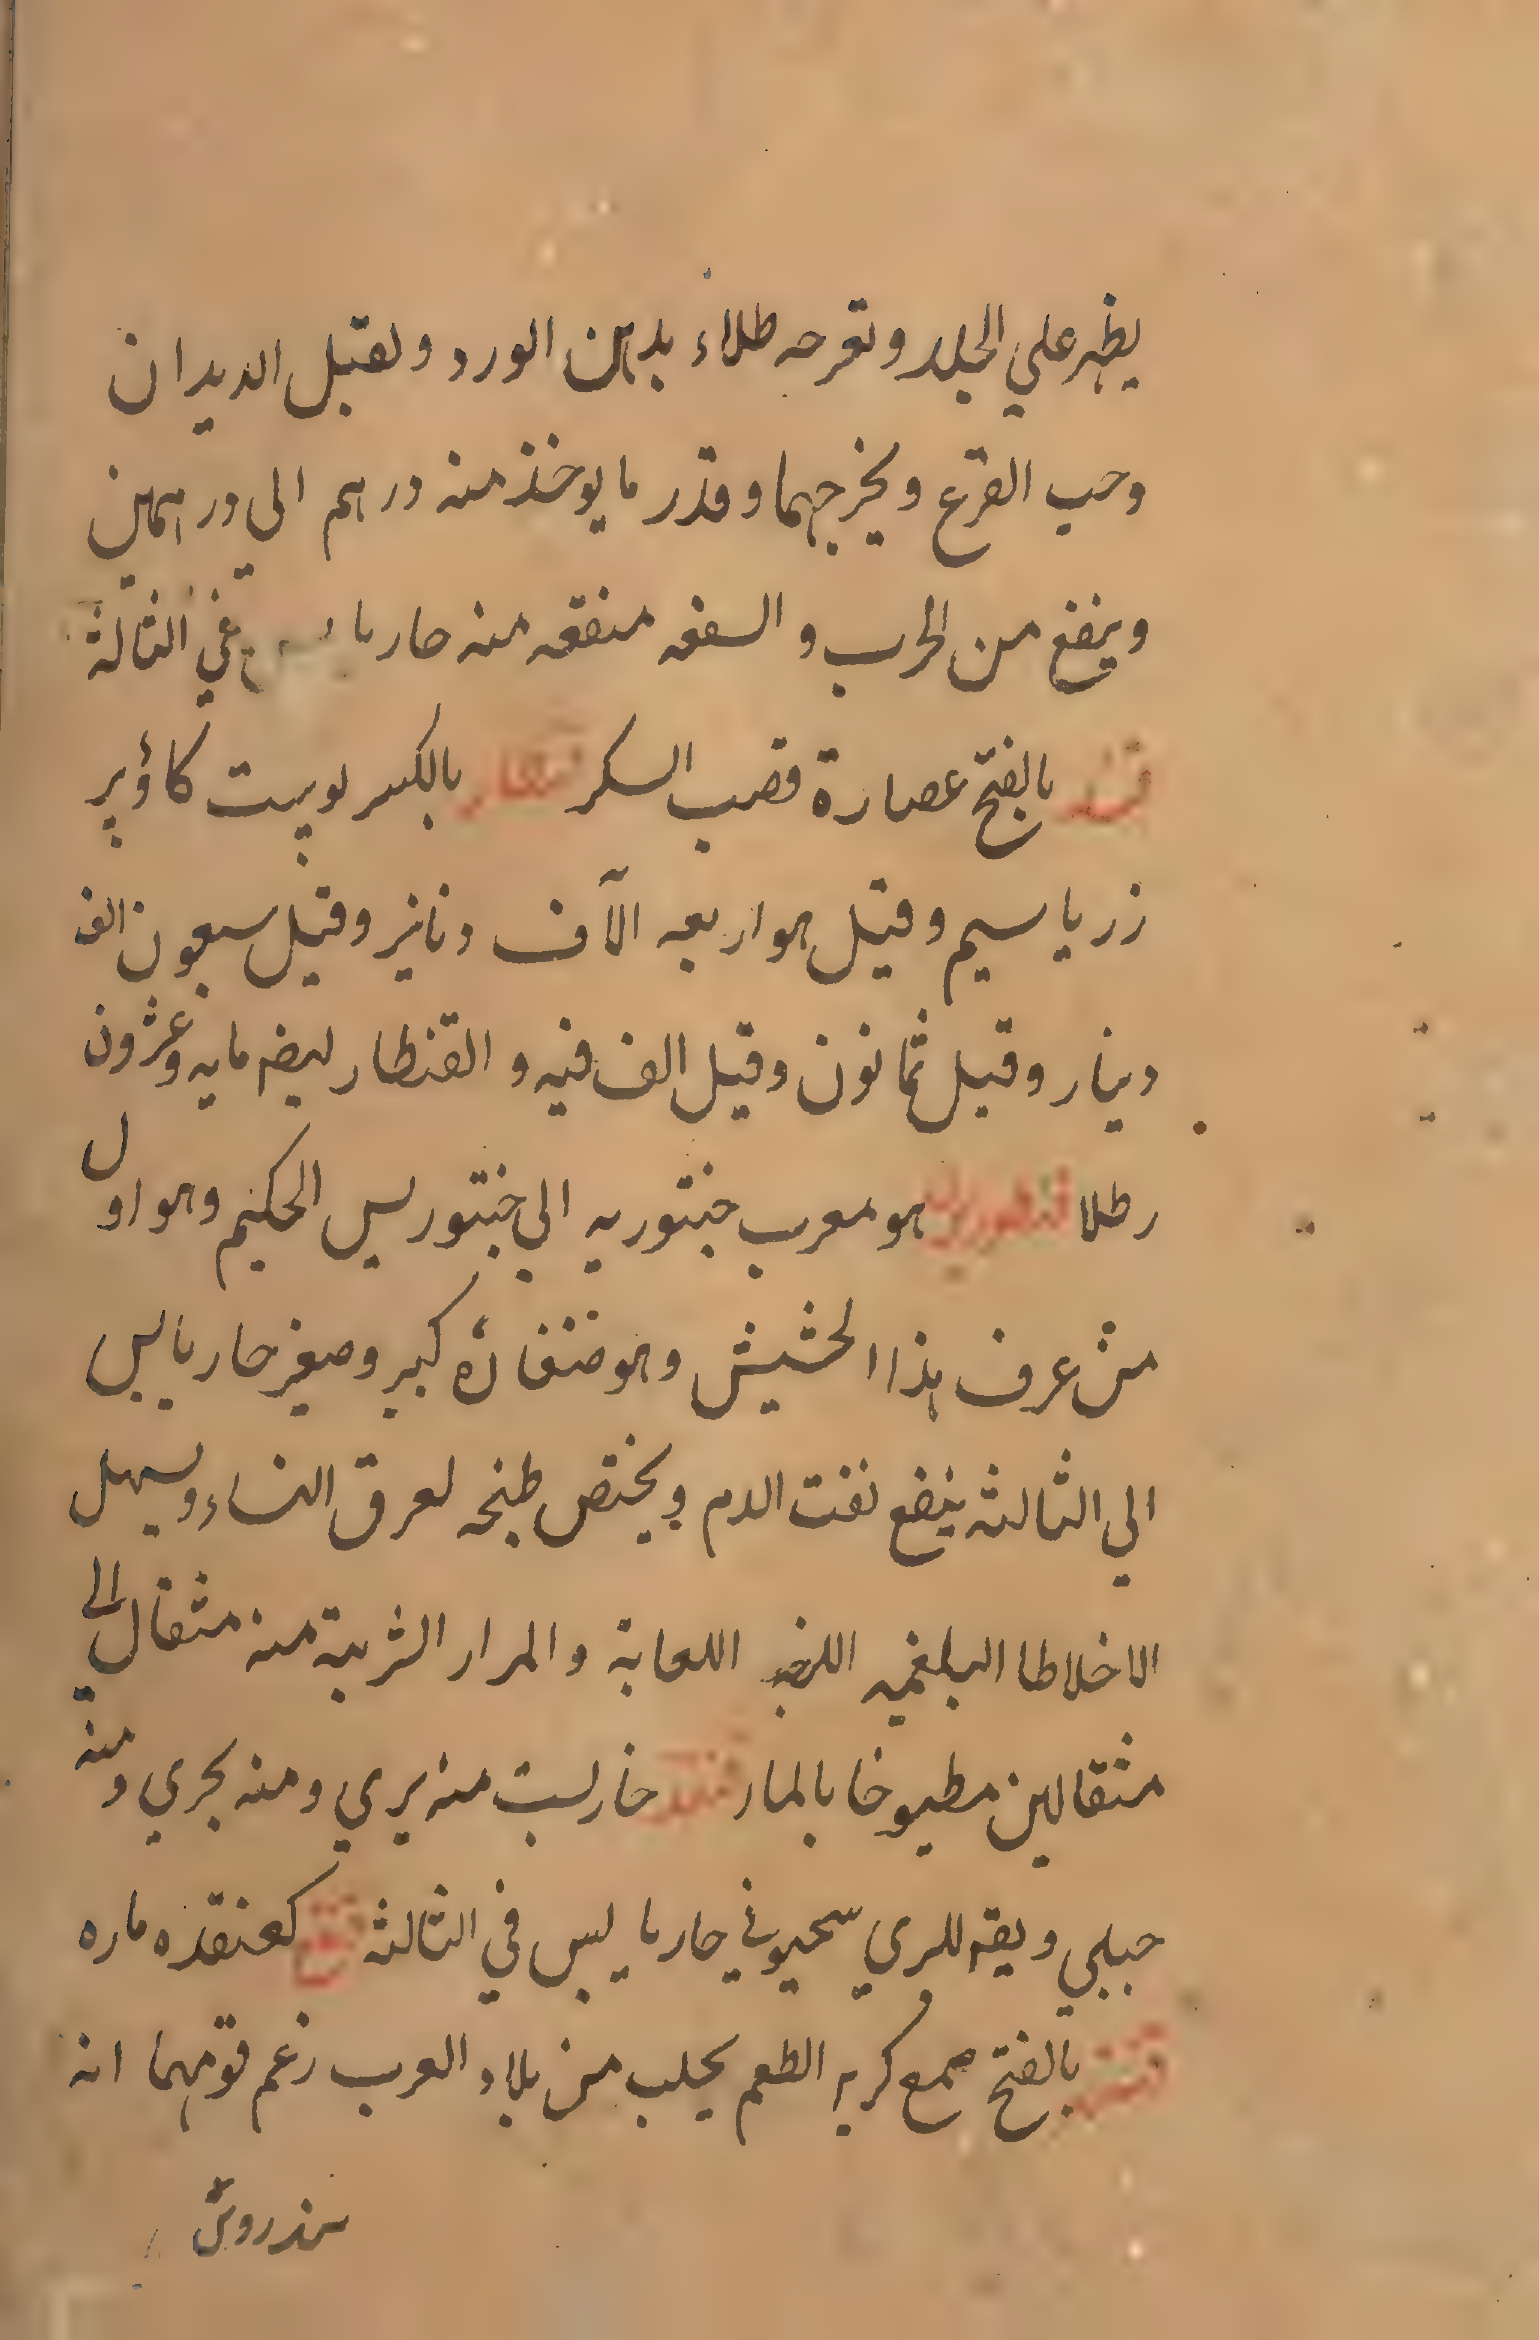 يظهر علي الجلد وتقرحه طلاء بدهن الورد ولقتل الديدان
وحب القرع ويخرجهما وقدر ما يوخذ منه درهم الي درهمين
وينفع من الجرب والسعفه منفعه منه حار يا في الثالثة
قند بالفتح عصارة قصب السكر قنطار بالكسر پوست كاؤ پر
زر يا سيم وقيل هو اربعه الآف دنانير وقيل سبعون الف
دينار وقيل ثمانون وقيل الف فيه و القنطار ليضم مايه وعشرون
رطلا قنطوريون هو معرب جنتوريه الي جنتوريس الحكيم وهو اول
من عرف هذا الحشيش وهو صنفان كبير وصغير حار يابس
الي الثالثه ينفع نفت الدم ويختص طبخه لعرق النساء ويسهل
الاخلاطا البلغميه اللزجه اللعابة والمرار الشربة منه مثقال الي
مثقالين مطبوخا بالمار قنفذ خارپشت منه بري ومنه بحري ومنه
جبلي ويقه للبري سحيوني حار يا يبس في الثالثه كعنقده ماره
بالفتح صمع كريه الطعم يجلب من بلاد العرب زعم قومهما انه
سندروس